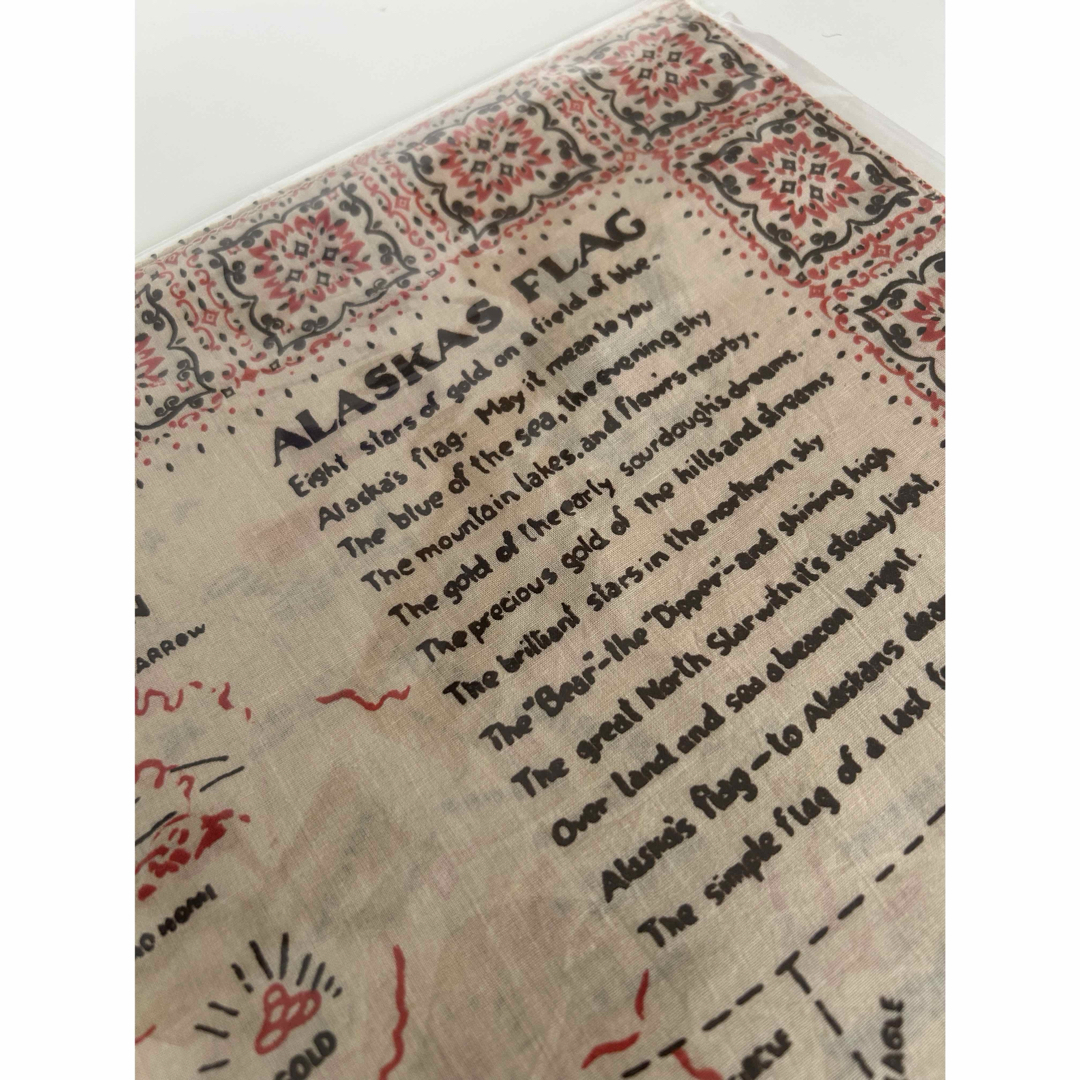 ALASKAS FLAG
Eight stars of gold on a field of the-
Alaska's flag. May it mean to you
The blue of the sea, the evening sky
The mountain lakes, and flow'rs nearby,
The gold of the early sourdough's dreams.
The precious gold of the hills and streams
The brilliant stars in the northern sky
The "Bear"-the "Dipper"-and shining high
The great North Star with it's steady light.
Over land and sea a beacon bright.
Alaska's flag-to Alaskans
The simple flag of a last
ARROW
GOLD